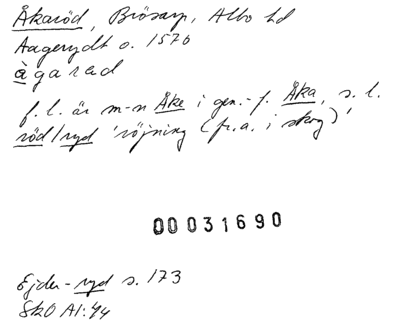 Åkaröd, Brösarp, Albo hd
Aagerydt o. 1570
àgarad
f.l. är m-n Åke i gen.-f. Åka, s.l.
röd/ryd 'röjning (fr.a. i skog)'
00031690
Ejder-ryd s. 173
SkO A1:44